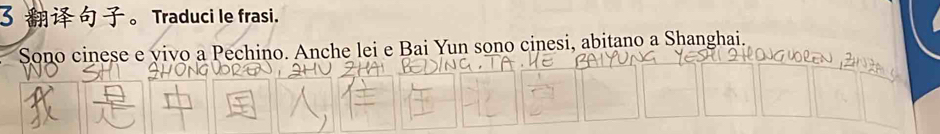 3 翻译句子。Traduci le frasi.
Sono cinese e vivo a Pechino. Anche lei e Bai Yun sono cinesi, abitano a Shanghai.
WO SHI ZHONGUOREN, ZHU ZHAI BEIJING. TA HE BAIYUNG YESHI ZHONGUOREN, ZHUZAI
我是中国人,住在北京